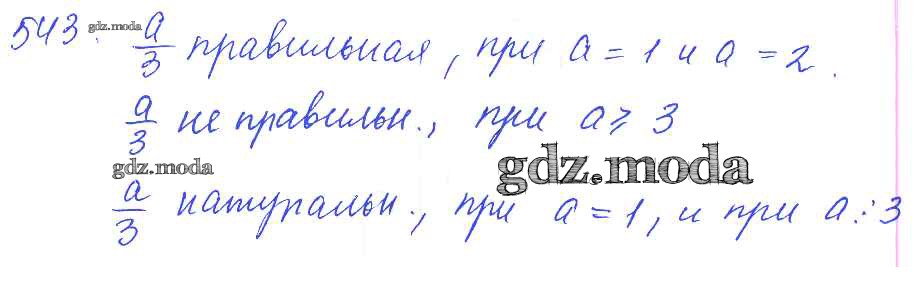 543. gdz.moda a/3 правильная, при a = 1 и a = 2.
a/3 не правильн., при a ⩾ 3
gdz.moda gdz.moda
a/3 натуральн., при a = 1, и при a ⋮ 3